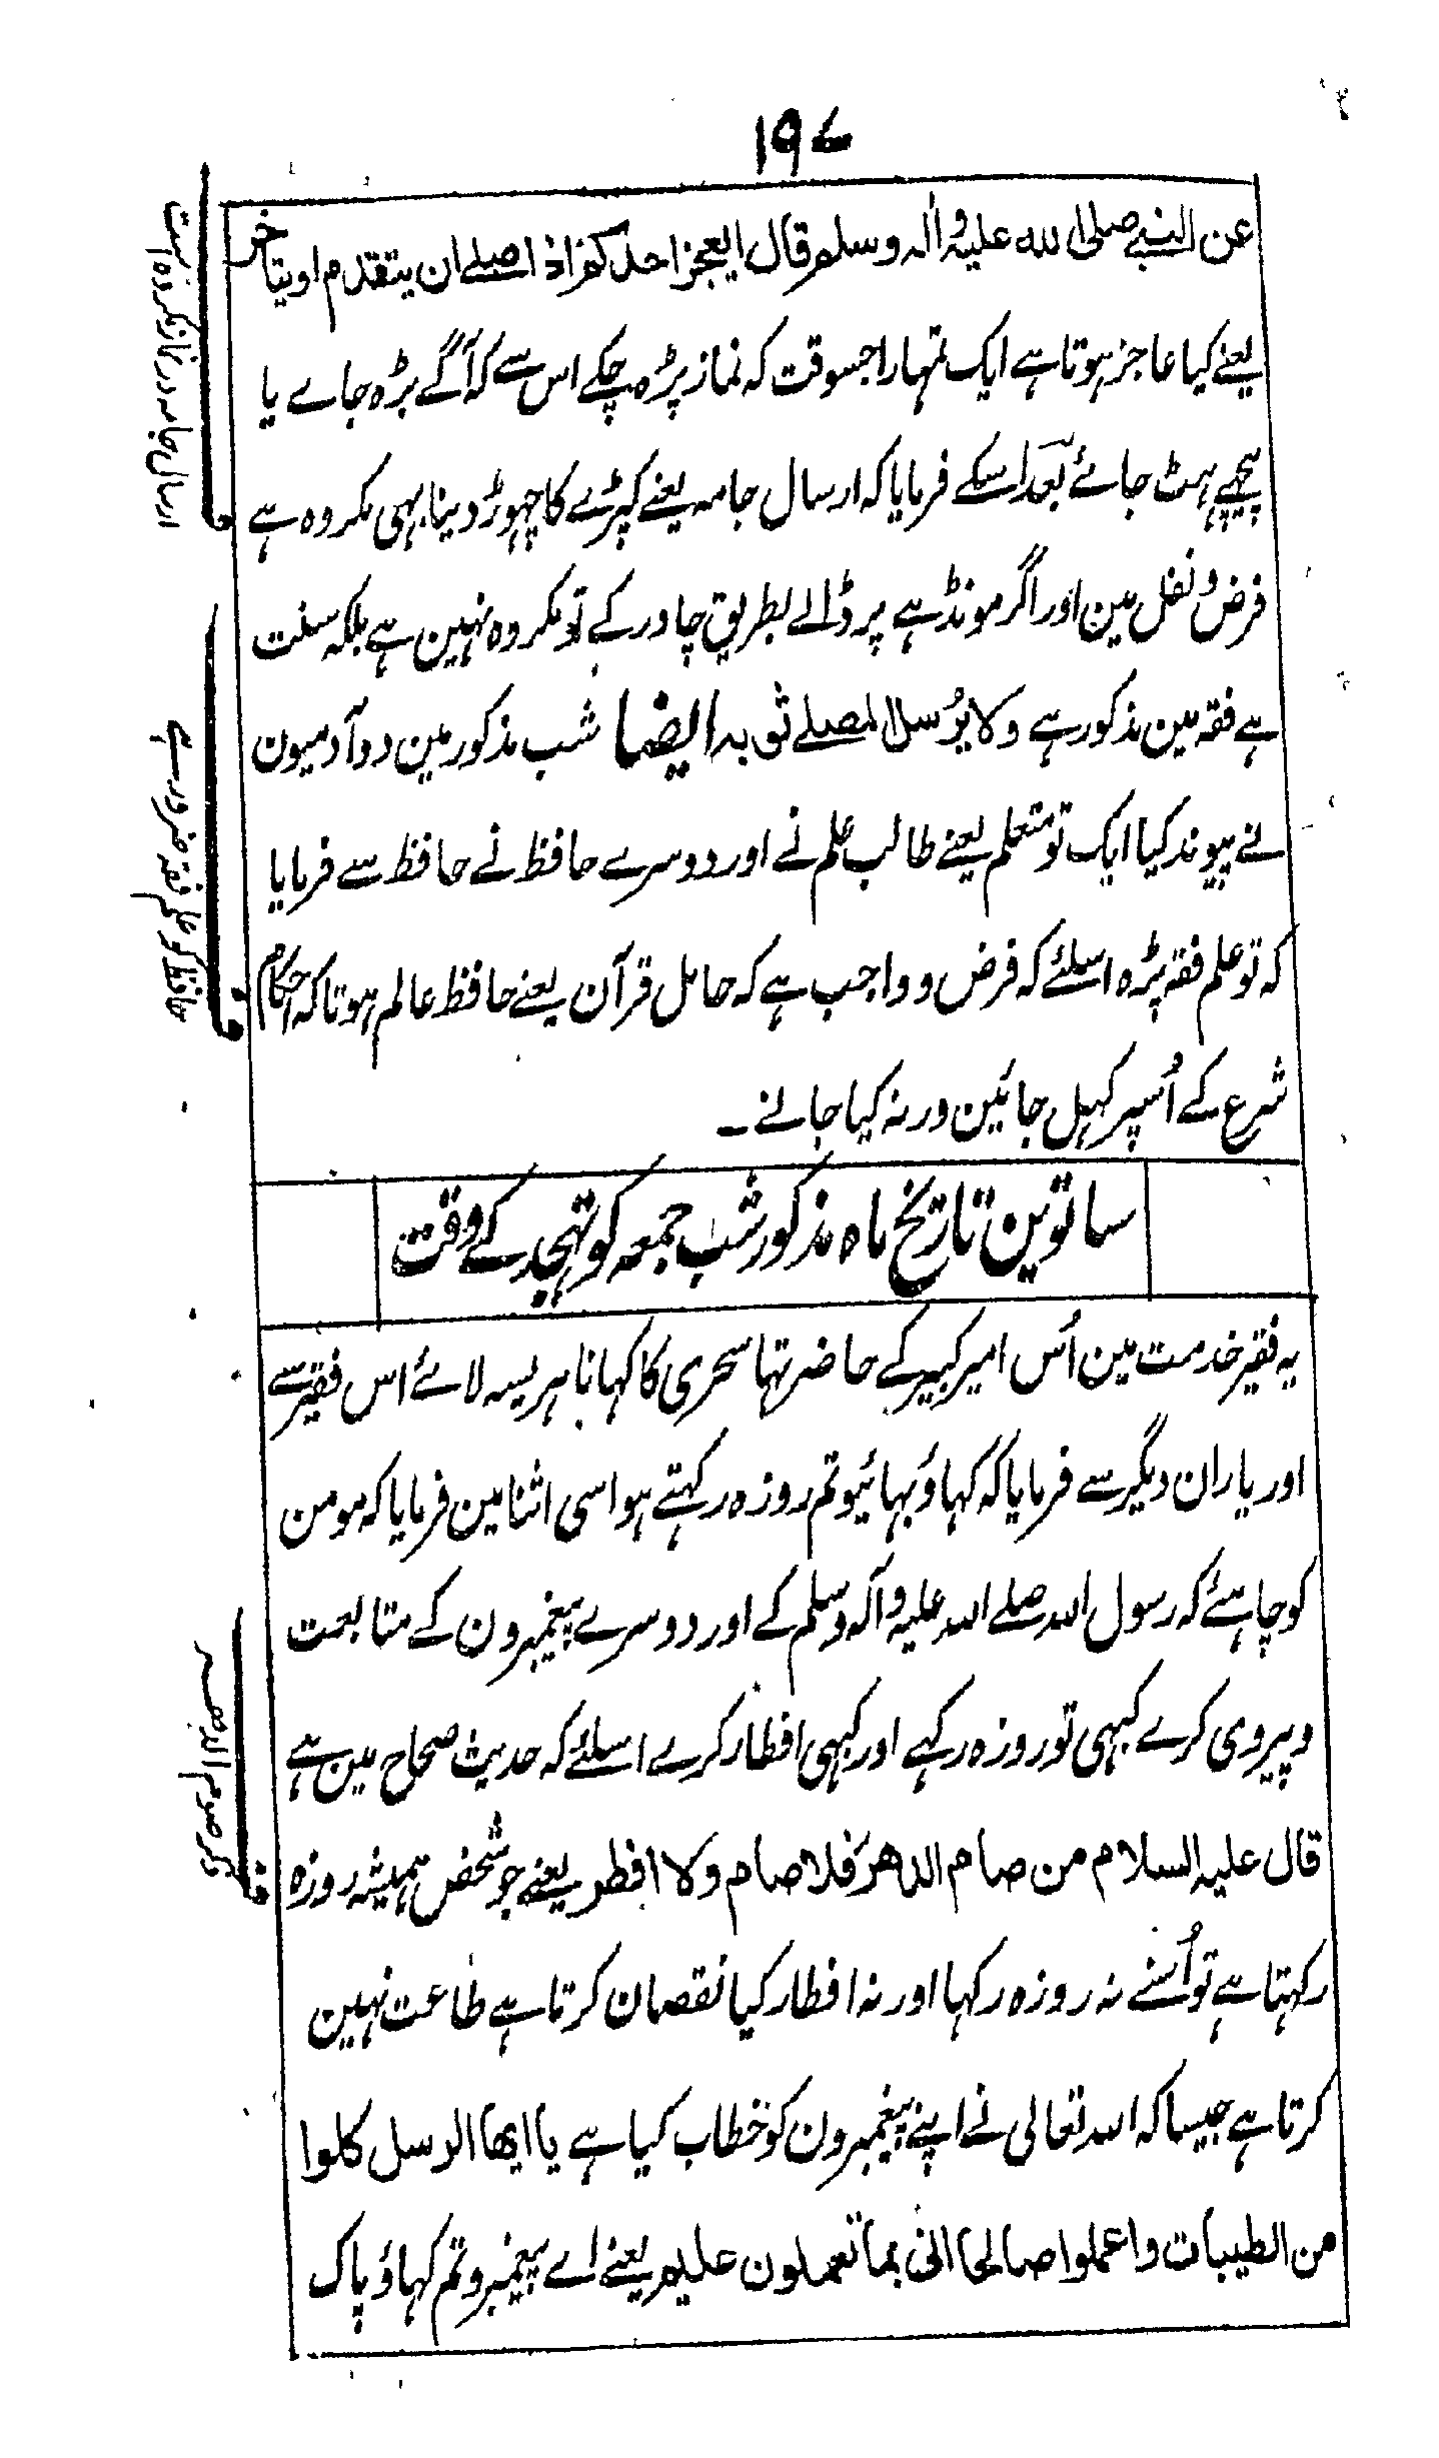 ۱۹۷
عن النبی صلی الله علیه واله وسلم قال ایعجز احدکم اذا صلے ان یتقدم او یتاخر
یعنے کیا عاجز ہوتا ہے ایک تمہارا جسوقت کہ نماز پڑہ چکے اس سے کہ آگے بڑہ جاے یا
پیچھے ہٹ جائے بعد اسکے فرمایا کہ ارسال جامہ یعنے کپڑے کا چہوڑ دینا بہی مکروہ ہے
فرض ونفل مین اور اگر مونڈہے پر ڈالے بطریق چادر کے تو مکروہ نہین ہے بلکہ سنت
ہے فقہ مین مذکور ہے ولا یرُسل المصلے ثوبہ ایضا شب مذکور مین دو آدمیون
نے پیوند کیا ایک تو متعلم یعنے طالب علم نے اور دوسرے حافظ نے حافظ سے فرمایا
کہ تو علم فقہ پڑہ اسلئے کہ فرض وواجب ہے کہ حامل قرآن یعنے حافظ عالم ہو تاکہ احکام
شرع کے اُسپر کہل جائین ورنہ کیا جانے ۔
ساتوین تاریخ ماہ مذکور شب جمعہ کو تہجد کے وقت
یہ فقیر خدمت مین اُس امیر کبیر کے حاضر تہا سحری کا کہانا ہریسہ لائے اس فقیر سے
اور یاران دیگر سے فرمایا کہ کہاؤ بہائیو تم روزہ رکہتے ہو اسی اثنا مین فرمایا کہ مومن
کو چاہئے کہ رسول اللہ صلے اللہ علیہ وآلہ وسلم کے اور دوسرے پیغمبرون کے متابعت
وپیروی کرے کبہی تو روزہ رکہے اور کبہی افطار کرے اسلئے کہ حدیث صحاح مین ہے
قال علیہ السلام من صام الدهر فلا صام ولا افطر یعنے جو شخص ہمیشہ روزہ
رکہتا ہے تو اُسنے نہ روزہ رکہا اور نہ افطار کیا نقصان کرتا ہے طاعت نہین
کرتا ہے جیسا کہ اللہ تعالی نے اپنے پیغمبرون کو خطاب کیا ہے یا ایها الرسل کلوا
من الطیبات واعملوا صالحا انی بما تعملون علیم یعنے اے پیغمبرو تم کہاؤ پاک
ف ارسال جامہ در نماز مکروہ است
ف حافظ کو علم فقہ ضرور ہے
ف ذکر صوم الدہر